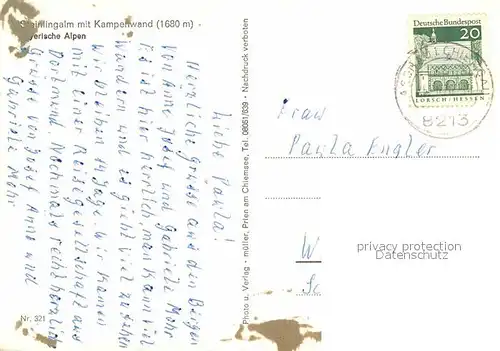 Steinlingalm mit Kampenwand (1680 m) -
Bayerische Alpen
Liebe Paula!
Herzliche Grüsse aus den Bergen
von Anne Josef und Gabriele Mohr
Es ist hier herrlich man kann viel
wandern und es giebt viel zu sehen
wir bleiben 14 Tage. Wir kamen
mit einer Reisegesellschaft aus
Dortmund. Nochmals recht herzliche
Grüsse von Josef Anne und
Gabriele Mohr
Nr. 321
Photo u. Verlag - müller, Prien am Chiemsee, Tel. 08051/639 - Nachdruck verboten
Deutsche Bundespost
20
LORSCH/HESSEN
8213
Frau
Paula Engler
W
privacy protection
Datenschutz